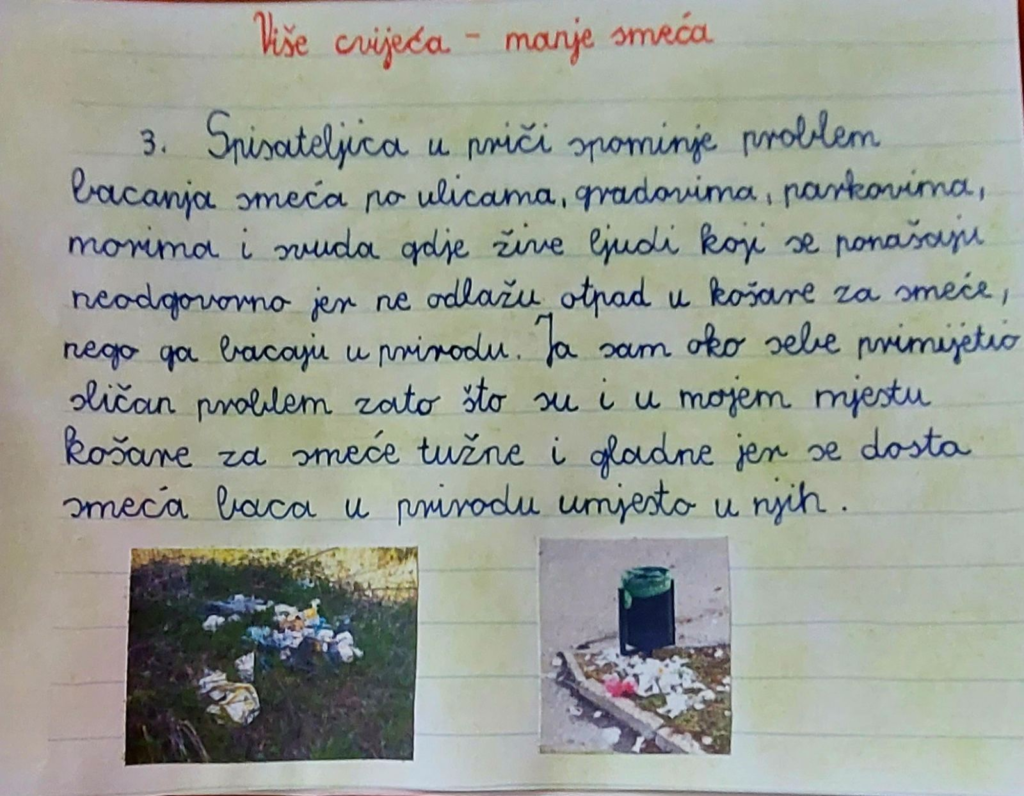 Više cvijeća - manje smeća
3. Spisateljica u priči spominje problem
bacanja smeća po ulicama, gradovima, parkovima,
morima i svuda gdje žive ljudi koji se ponašaju
neodgovorno jer ne odlažu otpad u košare za smeće,
nego ga bacaju u prirodu. Ja sam oko sebe primijetio
sličan problem zato što su i u mojem mjestu
košare za smeće tužne i gladne jer se dosta
smeća baca u prirodu umjesto u njih.